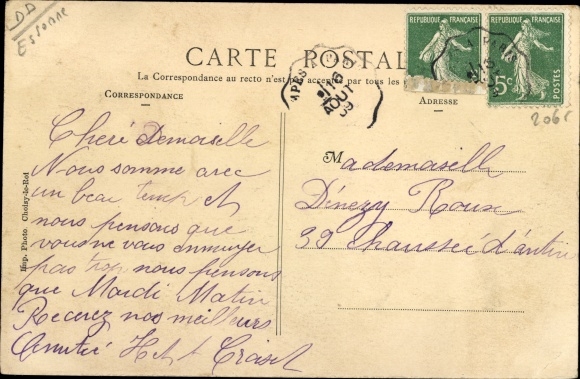 DD
Essonne
CARTE POSTALE
La Correspondance au recto n'est pas acceptée par tous les
CORRESPONDANCE
ADRESSE
REPUBLIQUE FRANÇAISE
REPUBLIQUE FRANÇAISE
5c
POSTES
PARIS
16
AOUT
09
206c
Cheré Demoiselle
Nous somme avec
un beau temp et
nous pensons que
vous ne vous ennuyer
pas trop nous pensons
que Mardi Matin
Recevez nos meilleurs
Amitié
Mademaselle
Dénezy Roux
39 Chaussée d'antin
Imp. Photo Choisy-le-Roi